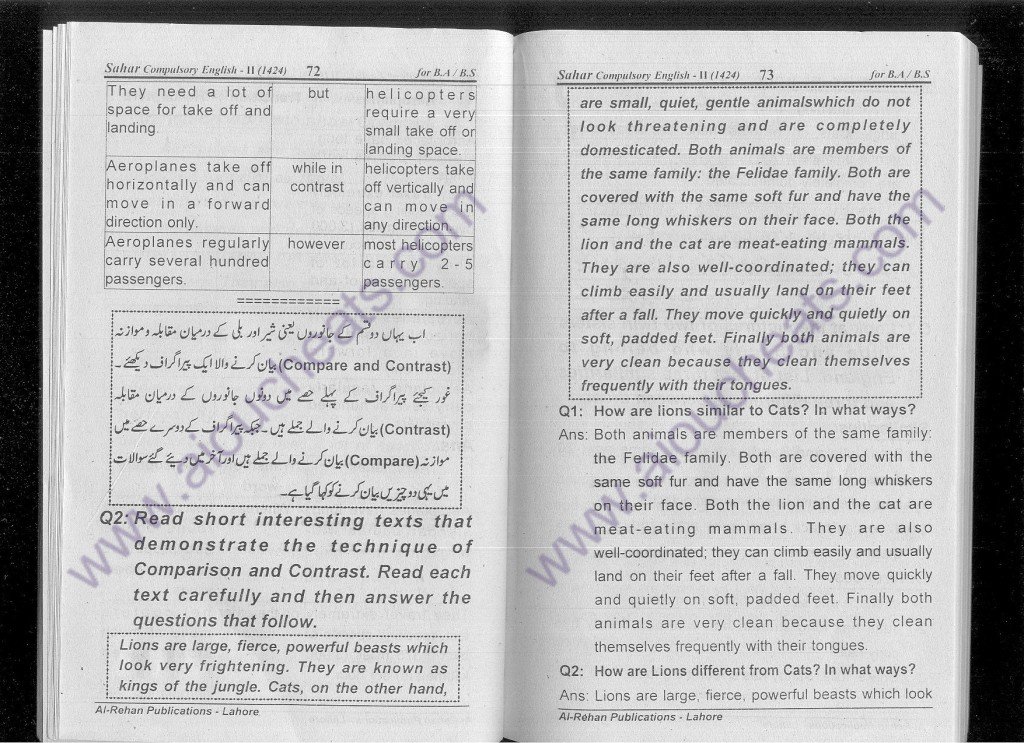 Sahar Compulsory English - II (1424) 72 for B.A / B.S
They need a lot of
space for take off and
landing.
but
helicopters
require a very
small take off or
landing space.
Aeroplanes take off
horizontally and can
move in a forward
direction only.
while in
contrast
helicopters take
off vertically and
can move in
any direction.
Aeroplanes regularly
carry several hundred
passengers.
however
most helicopters
carry 2-5
passengers.
============
اب یہاں دو قسم کے جانوروں یعنی شیر اور بلی کے درمیان مقابلہ و موازنہ
(Compare and Contrast) بیان کرنے والا ایک پیراگراف دیکھئے۔
غور کیجئے پیراگراف کے پہلے حصے میں دونوں جانوروں کے درمیان مقابلہ
(Contrast) بیان کرنے والے جملے ہیں۔ جبکہ پیراگراف کے دوسرے حصے میں
موازنہ (Compare) بیان کرنے والے جملے ہیں اور آخر میں دیئے گئے سوالات
میں یہی دو چیزیں بیان کرنے کو کہا گیا ہے۔
Q2: Read short interesting texts that
demonstrate the technique of
Comparison and Contrast. Read each
text carefully and then answer the
questions that follow.
Lions are large, fierce, powerful beasts which
look very frightening. They are known as
kings of the jungle. Cats, on the other hand,
Al-Rehan Publications - Lahore
www.aioucheats.com
Sahar Compulsory English - II (1424) 73 for B.A / B.S
are small, quiet, gentle animalswhich do not
look threatening and are completely
domesticated. Both animals are members of
the same family: the Felidae family. Both are
covered with the same soft fur and have the
same long whiskers on their face. Both the
lion and the cat are meat-eating mammals.
They are also well-coordinated; they can
climb easily and usually land on their feet
after a fall. They move quickly and quietly on
soft, padded feet. Finally both animals are
very clean because they clean themselves
frequently with their tongues.
Q1: How are lions similar to Cats? In what ways?
Ans: Both animals are members of the same family:
the Felidae family. Both are covered with the
same soft fur and have the same long whiskers
on their face. Both the lion and the cat are
meat-eating mammals. They are also
well-coordinated; they can climb easily and usually
land on their feet after a fall. They move quickly
and quietly on soft, padded feet. Finally both
animals are very clean because they clean
themselves frequently with their tongues.
Q2: How are Lions different from Cats? In what ways?
Ans: Lions are large, fierce, powerful beasts which look
Al-Rehan Publications - Lahore
www.aioucheats.com